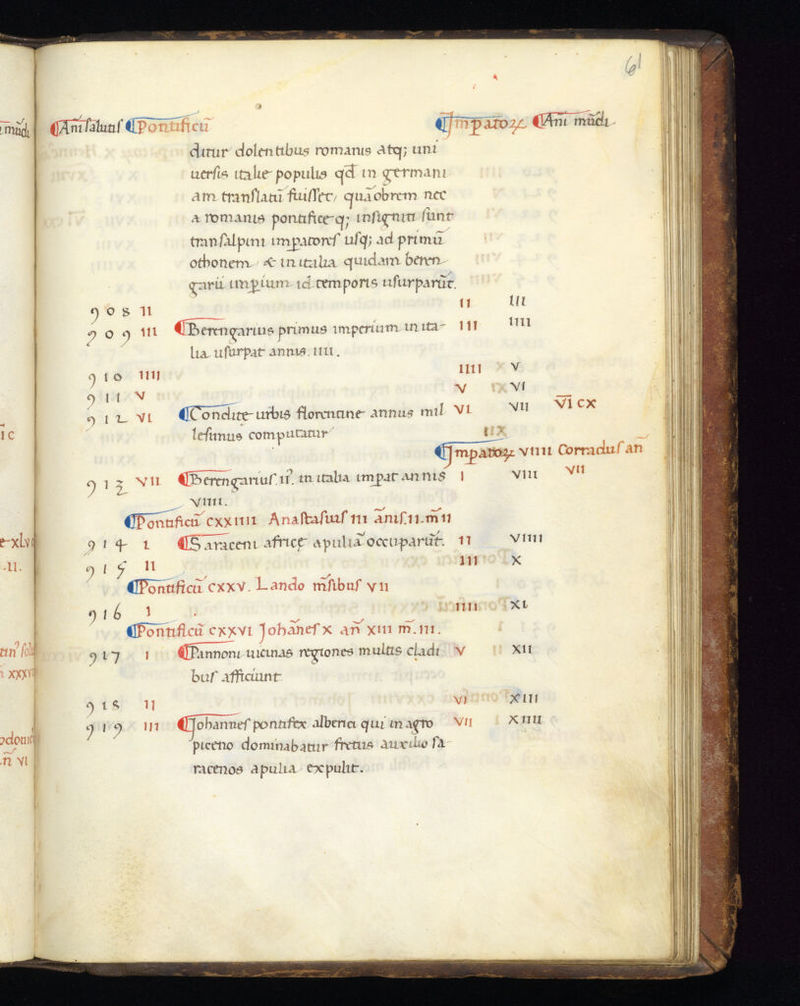 61
Ani salutis Pontificū Imꝑatoꝝ Ani mūdi
ditur dolentibus romanis atq; uni
uersis italie populis qđ in germani
am translatū fuisset, quāobrem nec
a romanis pontificeq; insigniti sunt
transalpini imꝑatores usq; ad primū
othonem & in italia quidam beren
garii imꝑium id temporis usurparūt.
908 II II III
909 III Berengarius primus imperium in ita III IIII
lia usurpat annis. IIII.
910 IIII IIII V
911 V V VI
912 VI Condite urbis florentine annus mil VI VII VI CX
lesimus computatur
Imꝑatoꝝ VIIII Corradus an̄
913 VII Berengarius II. in italia impat annis I VIII VII
VIIII.
Pontificū CXXIIII Anastasius III ānis. II. m̄ II
914 I Saraceni africe apuliā occuparūt. II VIIII
915 II III X
Pontificū CXXV. Lando m̄sibus VII
916 I IIII XI
Pontificū CXXVI Johānes X an̄ XIII m̄. III.
917 I Pannoni uicinas regiones multis cladi V XII
bus afficiunt
918 II VI XIII
919 III Johannes pontifex alberici qui in agro VII XIIII
piceno dominabatur fretus auxilio sa
racenos apulia expulit.